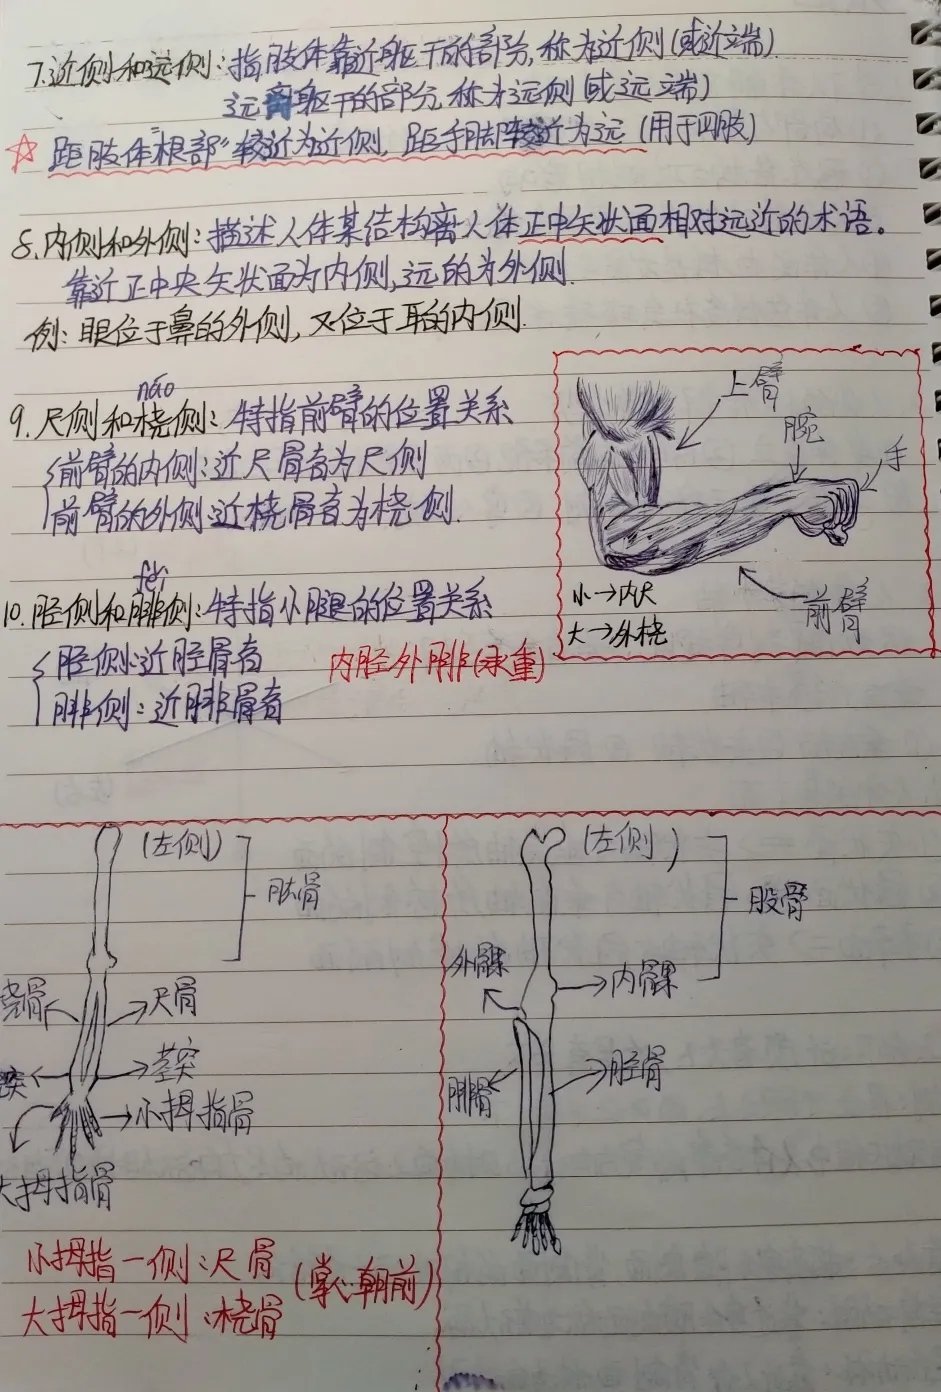 7.近侧和远侧:指肢体靠近躯干的部分,称为近侧(或近端)
远离躯干的部分,称为远侧(或远端)
☆ 距肢体“根部”较近为近侧,距手脚较近为远(用于四肢)
8.内侧和外侧:描述人体某结构离人体正中矢状面相对远近的术语。
靠近正中央矢状面为内侧,远的为外侧.
例:眼位于鼻的外侧,又位于耳的内侧.
náo
9.尺侧和桡侧:特指前臂的位置关系
前臂的内侧:近尺骨者为尺侧
前臂的外侧:近桡骨者为桡侧.
上臂
腕
手
前臂
小→内尺
大→外桡
féi
10.胫侧和腓侧:特指小腿的位置关系
胫侧:近胫骨者
腓侧:近腓骨者
内胫外腓(承重)
(左侧)
肱骨
桡骨
尺骨
茎突
突
小拇指骨
大拇指骨
小拇指一侧:尺骨
大拇指一侧:桡骨
(掌心朝前)
(左侧)
股骨
外髁
内髁
腓骨
胫骨